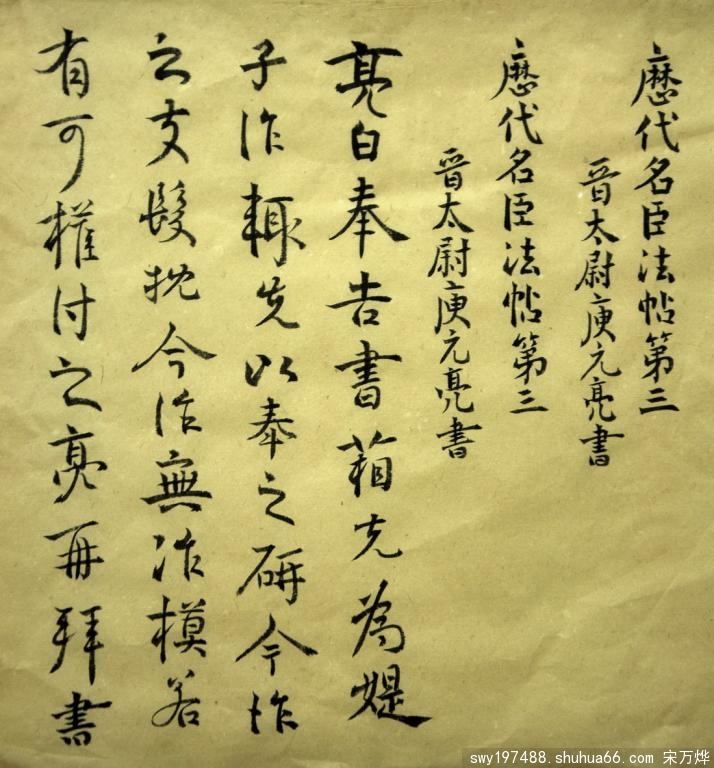 歷代名臣法帖第三
晉太尉庾元亮書
歷代名臣法帖第三
晉太尉庾元亮書
亮白奉告書箱先為媞
子作輙先以奉之研今作
之支髮枕今作無作模若
有可權付之亮再拜書
swy197488.shuhua66.com 宋万烨